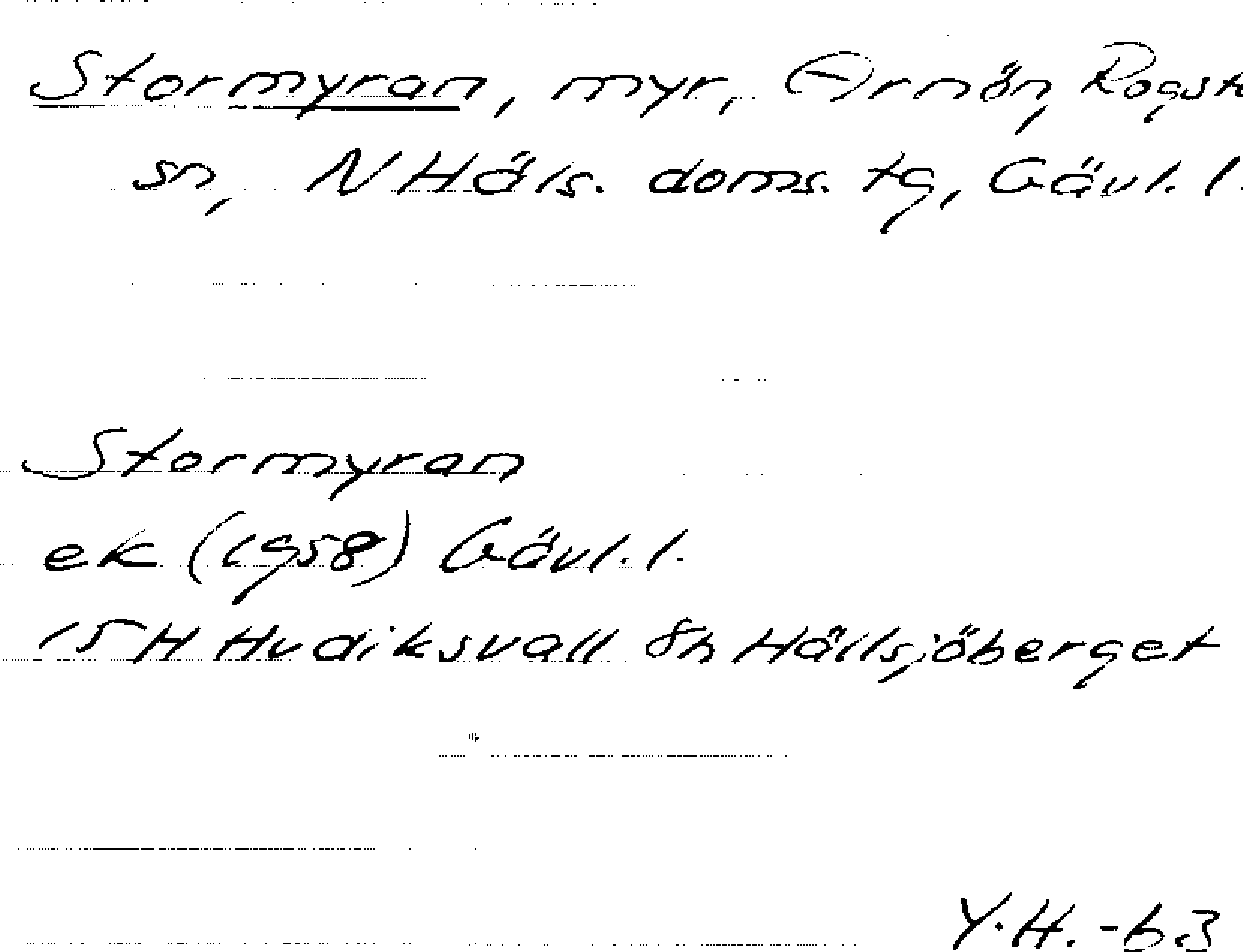 Stormyran, myr, Arnön, Rogsta
sn, N Häls. doms. tg, Gävl. l.
Stormyran
ek (1958) Gävl. l.
15 H Hudiksvall 8h Hällsjöberget
Y.H. -63